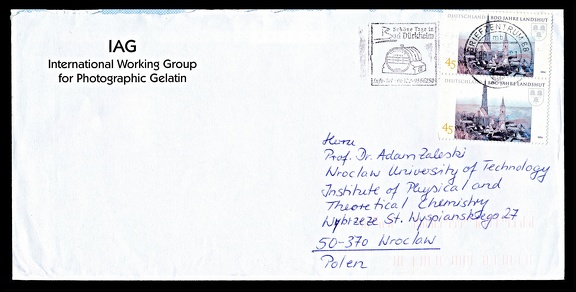 IAG
International Working Group
for Photographic Gelatin
Schöne Tage in
Bad Dürkheim
DEUTSCHLAND 800 JAHRE LANDSHUT
BRIEFZENTRUM 68
mb
45
DEUTSCHLAND 800 JAHRE LANDSHUT
45
Herrn
Prof. Dr. Adam Zaleski
Wroclaw University of Technology
Institute of Physical and
Theoretical Chemistry
Wybrzeze St. Wyspianskiego 27
50-370 Wroclaw
Polen